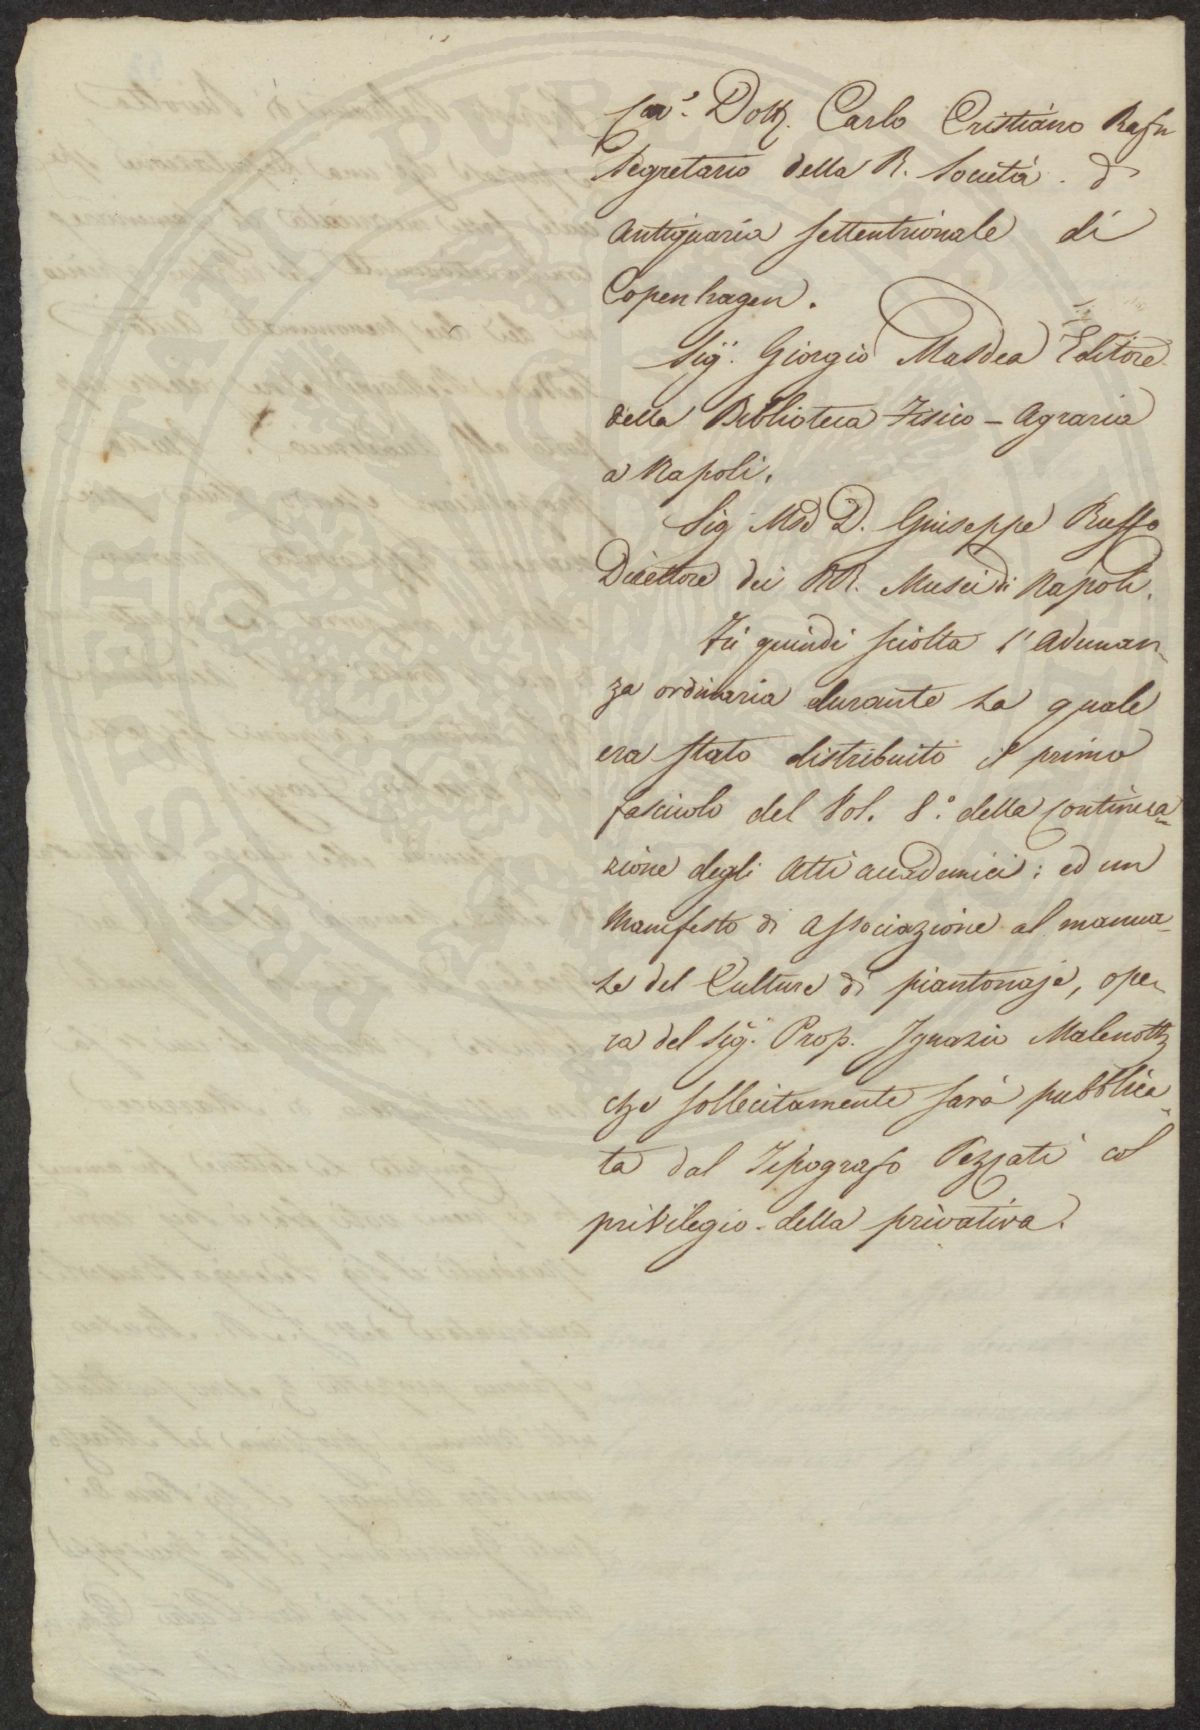 Cav.r Dott. Carlo Cristiano Rafn
Segretario della R. Società. di
Antiquaria settentrionale di
Copenhagen.
Sig.r Giorgio Masdea Editore
della Biblioteca Fisico-Agraria
a Napoli.
Sig. D. Giuseppe Ruffo
Direttore dei RR. Musei di Napoli.
Fu quindi sciolta l'Adunan-
za ordinaria durante La quale
era stato distribuito il primo
fascicolo del Vol. 8.° della continua-
zione degli Atti accademici: ed un
Manifesto di associazione al manua-
Le del Cultore di piantonaje, ope-
ra del Sig.r Prop. Ignazio Malenotti
che sollecitamente sarà pubblica-
ta dal Tipografo Pezzati col
privilegio della privativa.